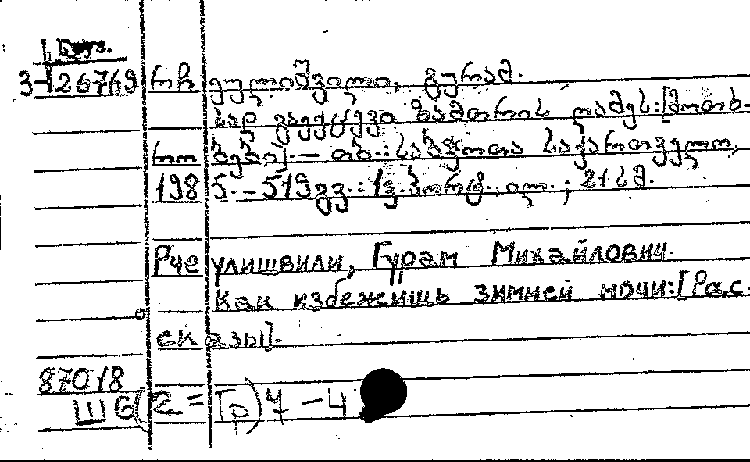 Груз.
3-126769 რჩეულიშვილი, გურამ.
სად გაექცევი ზამთრის ღამეს: [მოთხ-
რობები]. — თბ.: საბჭოთა საქართველო,
1985. — 519გვ.: 1ფ. პორტ. ილ.; 21სმ.
Рчеулишвили, Гурам Михайлович.
Как избежишь зимней ночи: [Рас-
сказы].
87018
Ш6(2=Гр)7-4